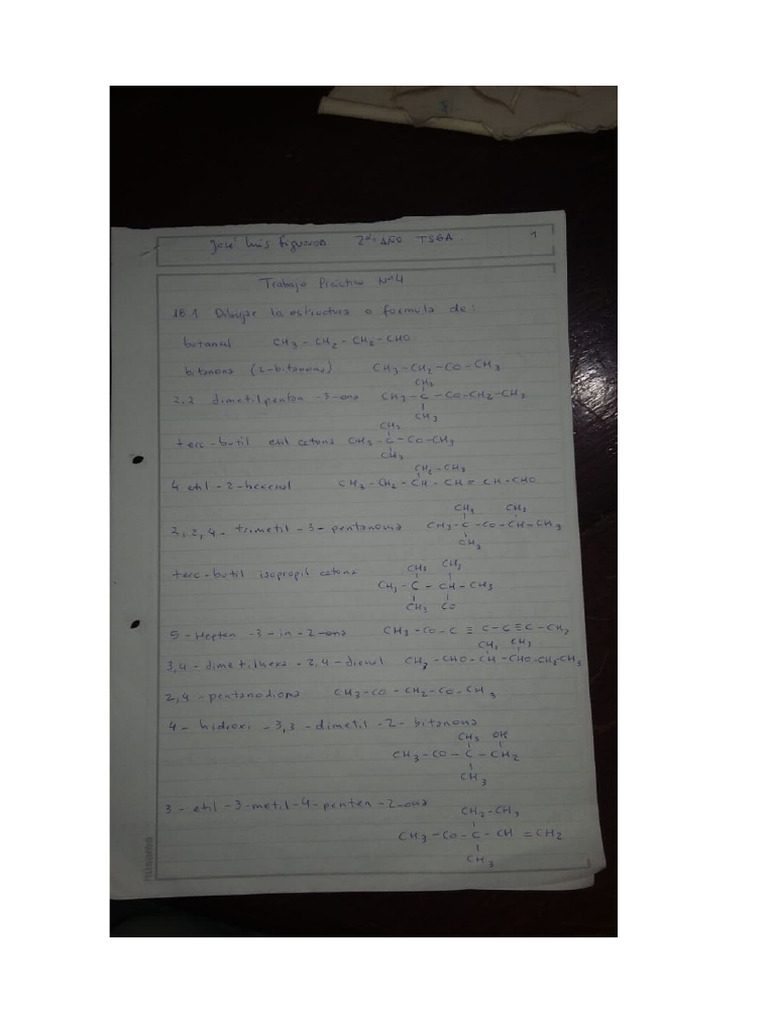 José Luis Figueroa 2do AÑO TSGA. 1
Trabajo Práctico Nº4
18.1 Dibujar la estructura o formula de:
butanal CH3 – CH2 – CH2 – CHO
(2-butanona) CH3 – CH2 – CO – CH3
CH3
2,2 dimetilpentan -3-ona CH3 – C – CO – CH2 – CH3
CH3
CH3
terc-butil etil cetona CH3 – C – CO – CH3
CH3
CH2 – CH3
4 etil -2-hexenal CH3 – CH2 – CH – CH = CH – CHO
CH3 CH3
2,2,4- trimetil -3-pentanona CH3 – C – CO – CH – CH3
CH3
CH3 CH3
terc-butil isopropil cetona CH3 – C – CH – CH3
CH3 CO
5-Hepten -3-in -2-ona CH3 – CO – C ≡ C – C ≡ C – CH2
CH3 CH3
3,4-dimetilhexa-2,4-dienal CH3 – CHO – CH – CHO – CH2 – CH3
2,4-pentanodiona CH3 – CO – CH2 – CO – CH3
4- hidroxi -3,3-dimetil-2-bitanona
CH3 OH
CH3 – CO – C – CH2
CH3
3-etil-3-metil-4-penten-2-ona
CH2 – CH3
CH3 – CO – C – CH = CH2
CH3